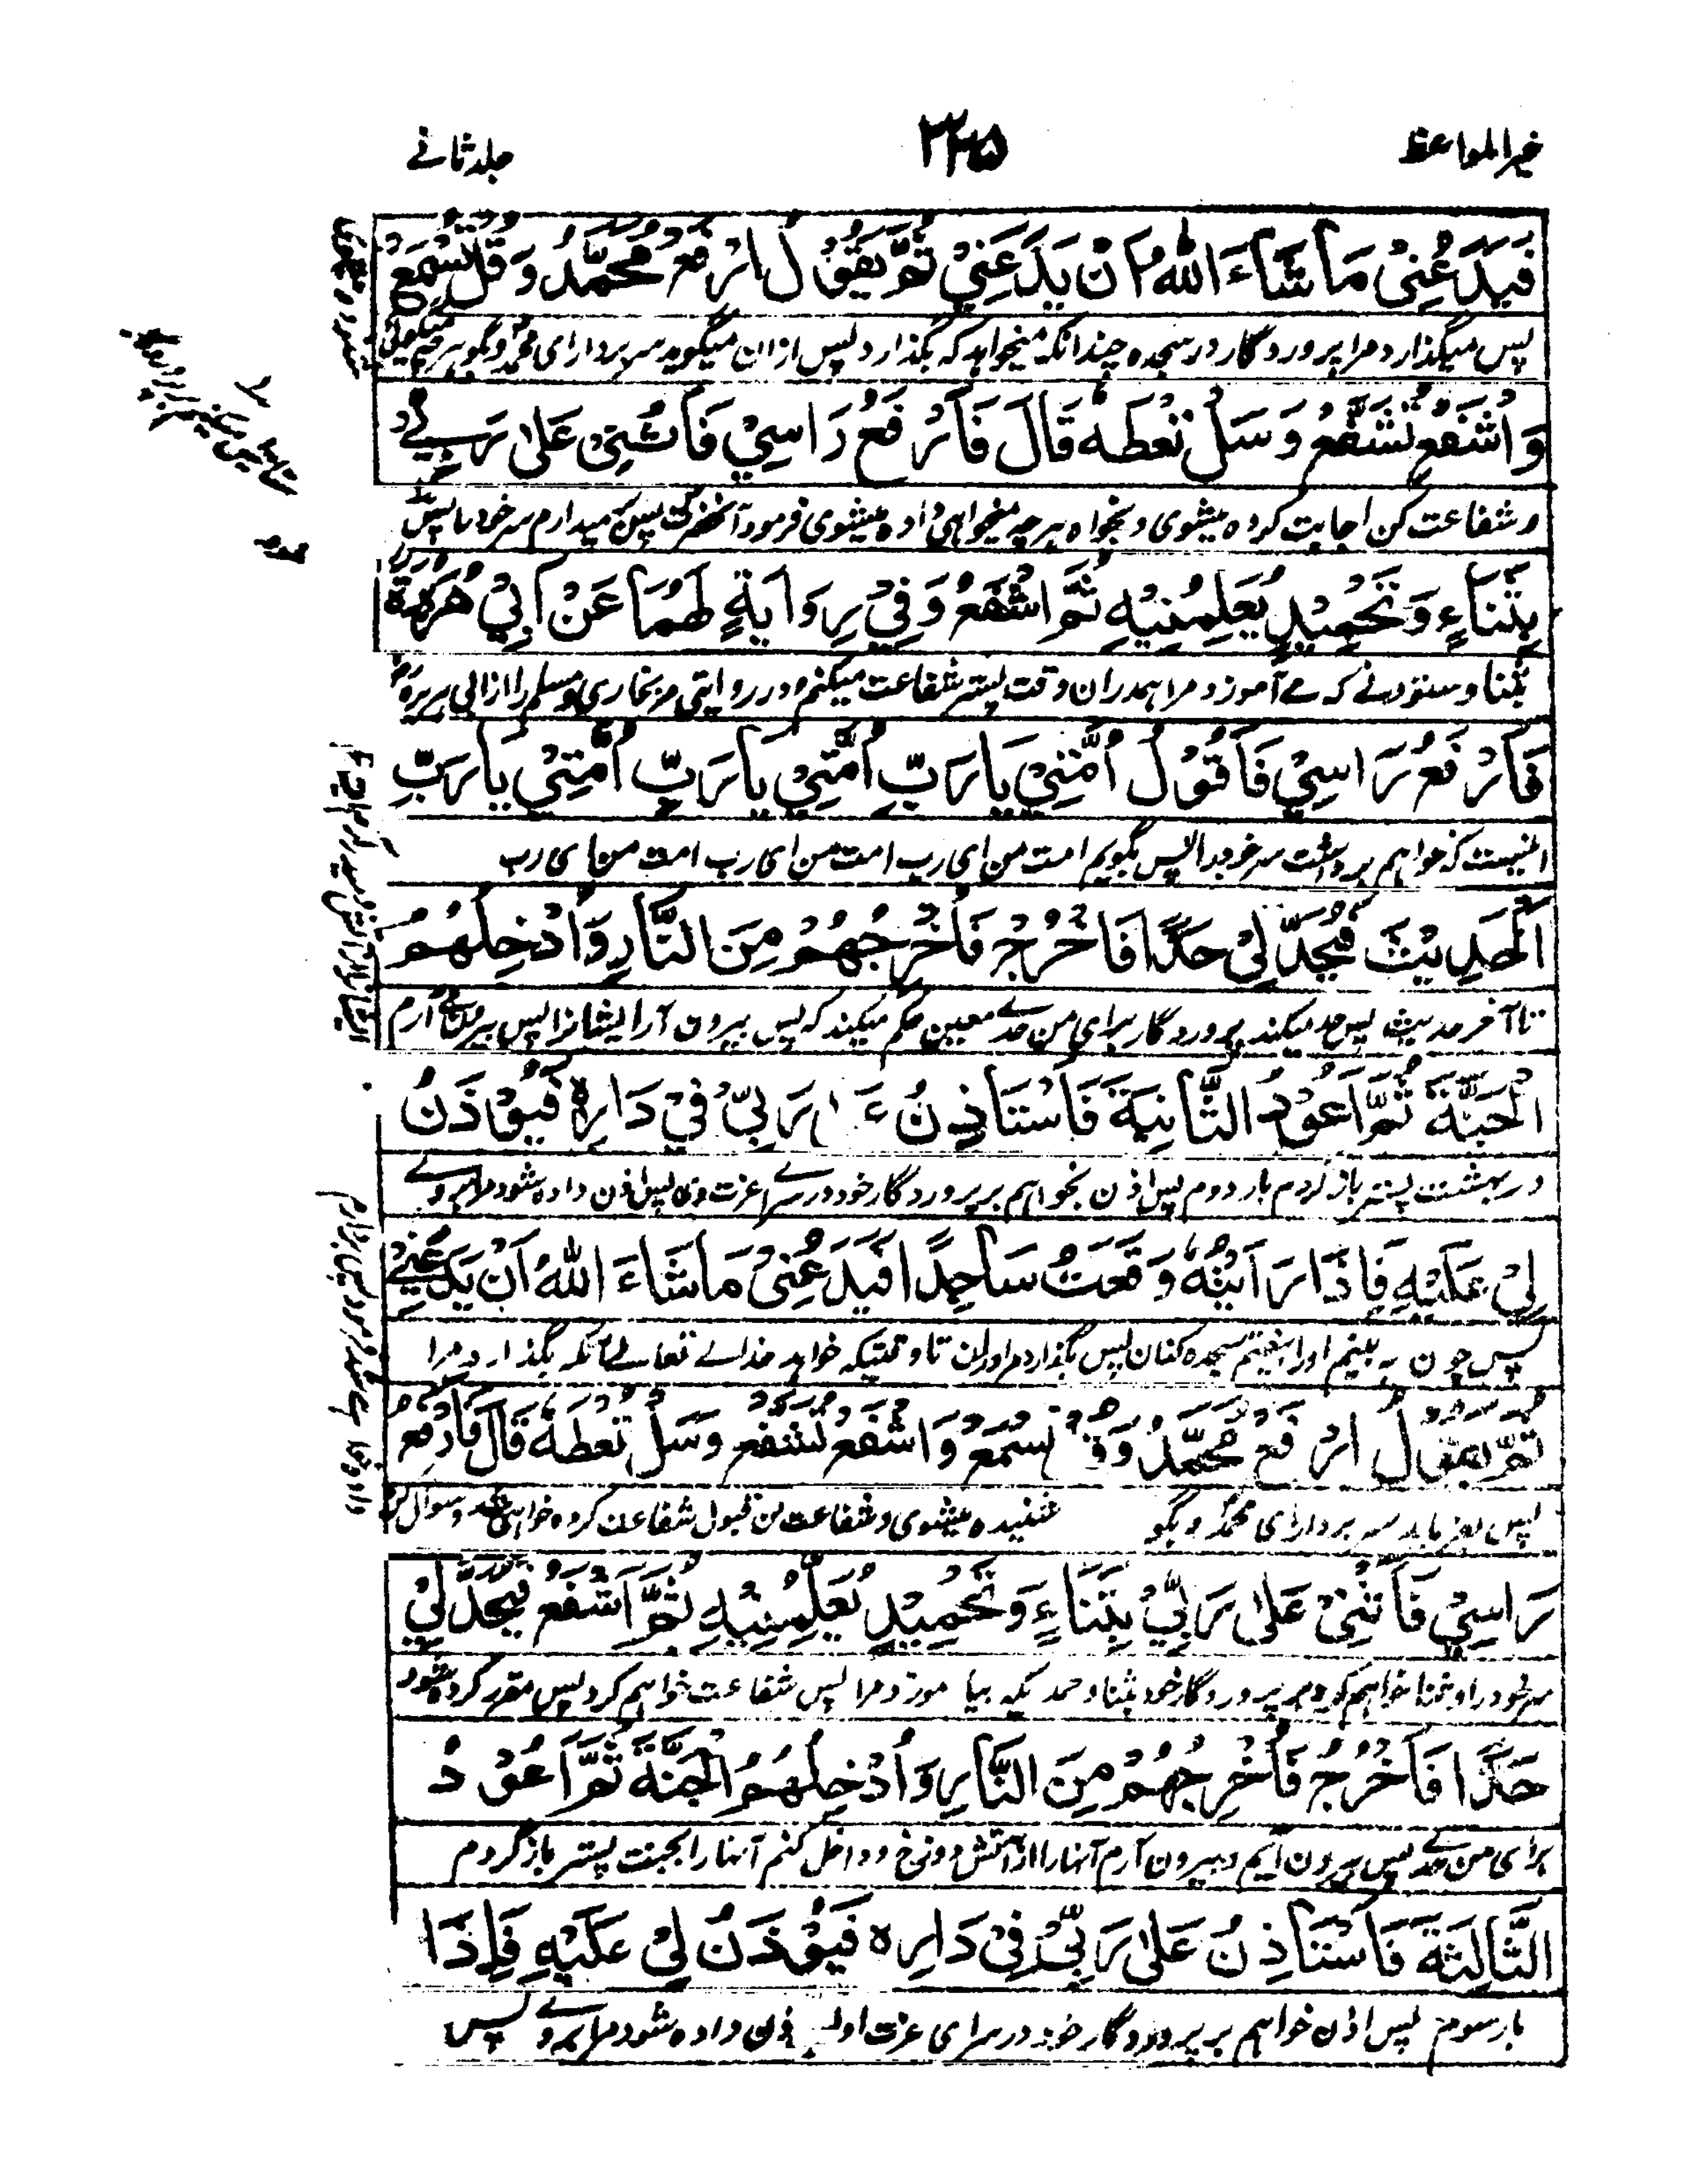 خیر المواعظ ۳۳۵ جلد ثانے
فَيَدَعُنِىْ مَا شَاءَ اللهُ اَنْ يَدَعَنِىْ ثُمَّ يَقُوْلُ ارْفَعْ مُحَمَّدُ وَقُلْ تُسْمَعْ
پس میگذارد مرا پروردگار در سجده چندانکه میخواهد که بگذارد پس ازان میگوید سر بردار ای محمد و بگو هرچه میگوئی
وَاشْفَعْ تُشَفَّعْ وَسَلْ تُعْطَهْ قَالَ فَاَرْفَعُ رَاسِىْ فَاُثْنِىْ عَلٰى رَبِّىْ
و شفاعت کن اجابت کرده میشوی و بخواه هرچه میخواهی داده میشوی فرمود آنحضرت پس میدارم سر خود پس
بِثَنَاءٍ وَتَحْمِيْدٍ يُعَلِّمُنِيْهِ ثُمَّ اَشْفَعُ وَفِىْ رِوَايَةٍ لَهُمَا عَنْ اَبِىْ هُرَيْرَةَ
بثنا و ستودنے که مے آموزد مرا همدران وقت پستر شفاعت میکنم و در روایتی مر بخاری و مسلم را از ابی هریره
فَاَرْفَعُ رَاسِىْ فَاَقُوْلُ اُمَّتِىْ يَا رَبِّ اُمَّتِىْ يَا رَبِّ اُمَّتِىْ يَا رَبِّ
که خواهم برداشت سر خود را پس بگویم امت من ای رب امت من ای رب امت من ای رب
اَلْحَدِيْثَ فَيُحَدُّ لِىْ حَدًّا فَاَخْرُجُ فَاُخْرِجُهُمْ مِنَ النَّارِ وَاُدْخِلُهُمُ
تا آخر حدیث پس حد میکند پروردگار برای من حدے معین حکم میکند که پس بیرون آر ایشانرا پس بیرون آرم
الْجَنَّةَ ثُمَّ اَعُوْدُ الثَّانِيَةَ فَاَسْتَاذِنُ عَلٰى رَبِّىْ فِىْ دَارِهٖ فَيُؤْذَنُ
در بهشت پستر باز گردم بار دوم پس اذن بخواهم بر پروردگار خود در سراے عزت وی پس اذن داده شود مرا بروے
لِىْ عَلَيْهِ فَاِذَا رَاَيْتُهٗ وَقَعْتُ سَاجِدًا فَيَدَعُنِىْ مَا شَاءَ اللهُ اَنْ يَدَعَنِىْ
پس چون به بینم اورا بیفتم سجده کنان پس بگذارد مرا دران تا وقتیکه خواهد خدائے تعالے آنکه بگذارد مرا
ثُمَّ يَقُوْلُ ارْفَعْ مُحَمَّدُ وَقُلْ تُسْمَعْ وَاشْفَعْ تُشَفَّعْ وَسَلْ تُعْطَهْ قَالَ فَاَرْفَعُ
پس بفرماید سر بردار ای محمد و بگو شنیده میشوی و شفاعت کن قبول شفاعت کرده خواهی شد و سوال کن
رَاسِىْ فَاُثْنِىْ عَلٰى رَبِّىْ بِثَنَاءٍ وَتَحْمِيْدٍ يُعَلِّمُنِيْهِ ثُمَّ اَشْفَعُ فَيُحَدُّ لِىْ
سر خود را و ثنا خواهم کرد بر پروردگار خود بثنا و حمد یکه بیاموزد مرا پس شفاعت خواهم کرد پس مقرر کرده شود
حَدًّا فَاَخْرُجُ فَاُخْرِجُهُمْ مِنَ النَّارِ وَاُدْخِلُهُمُ الْجَنَّةَ ثُمَّ اَعُوْدُ
برای من حدے پس بیرون آیم و بیرون آرم آنها را از آتش دوزخ و داخل کنم آنها را بجنت پستر باز گردم
الثَّالِثَةَ فَاَسْتَاذِنُ عَلٰى رَبِّىْ فِىْ دَارِهٖ فَيُؤْذَنُ لِىْ عَلَيْهِ فَاِذَا
بار سوم پس اذن خواهم بر پروردگار خود در سرای عزت او اذن داده شود مرا بروے پس